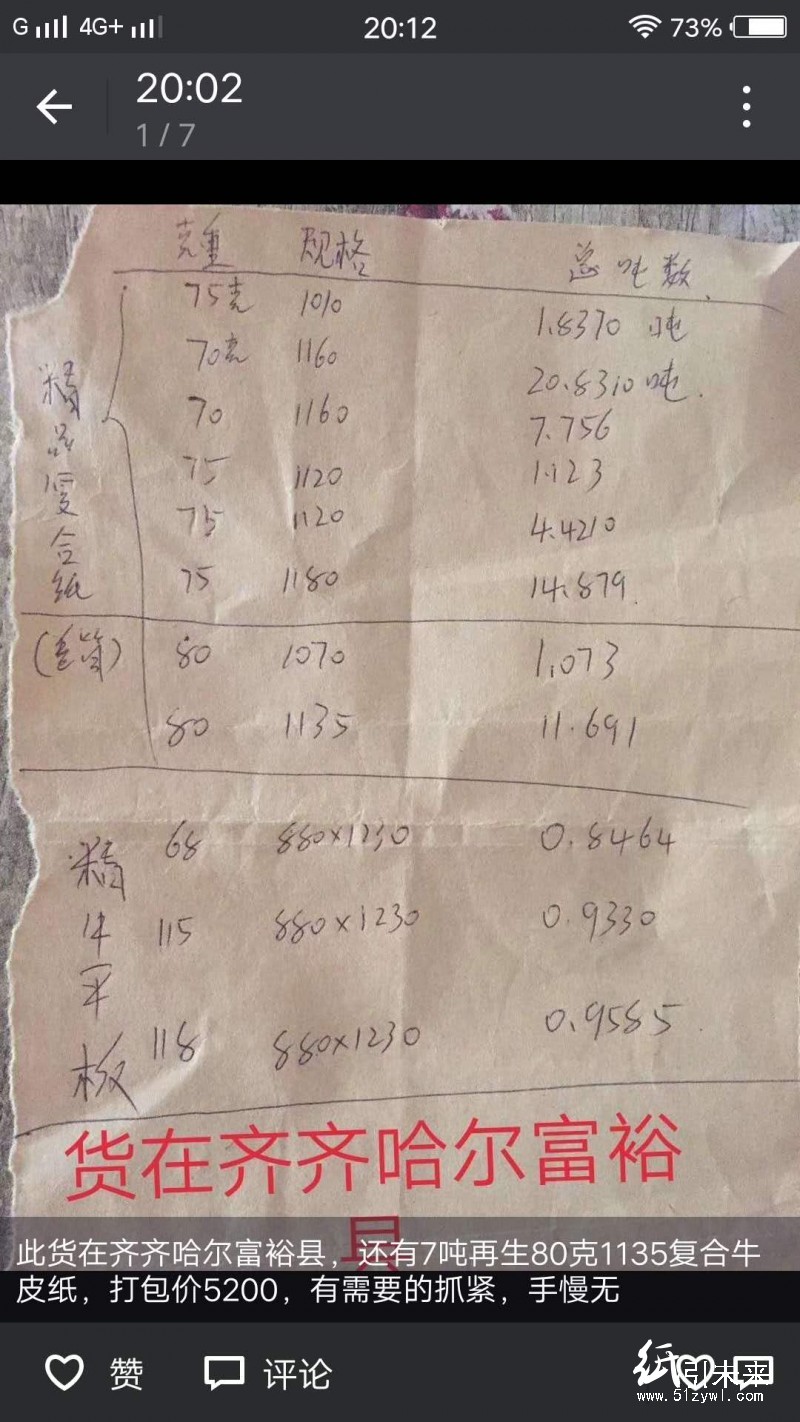 G 4G+ 20:12 73%
20:02
1 / 7
克重 规格 总吨数
75克 1010 1.8370 吨
70克 1160 20.8310吨.
70 1160 7.756
75 1120 1.123
75 1120 4.4210
75 1180 14.879
精品复合纸
80 1070 1.073
80 1135 11.691
精牛平板
68 880×1230 0.8464
115 880×1230 0.9330
118 880×1230 0.9585
货在齐齐哈尔富裕
县
此货在齐齐哈尔富裕县，还有7吨再生80克1135复合牛
皮纸，打包价5200，有需要的抓紧，手慢无
赞 评论
纸引未来
www.51zywl.com